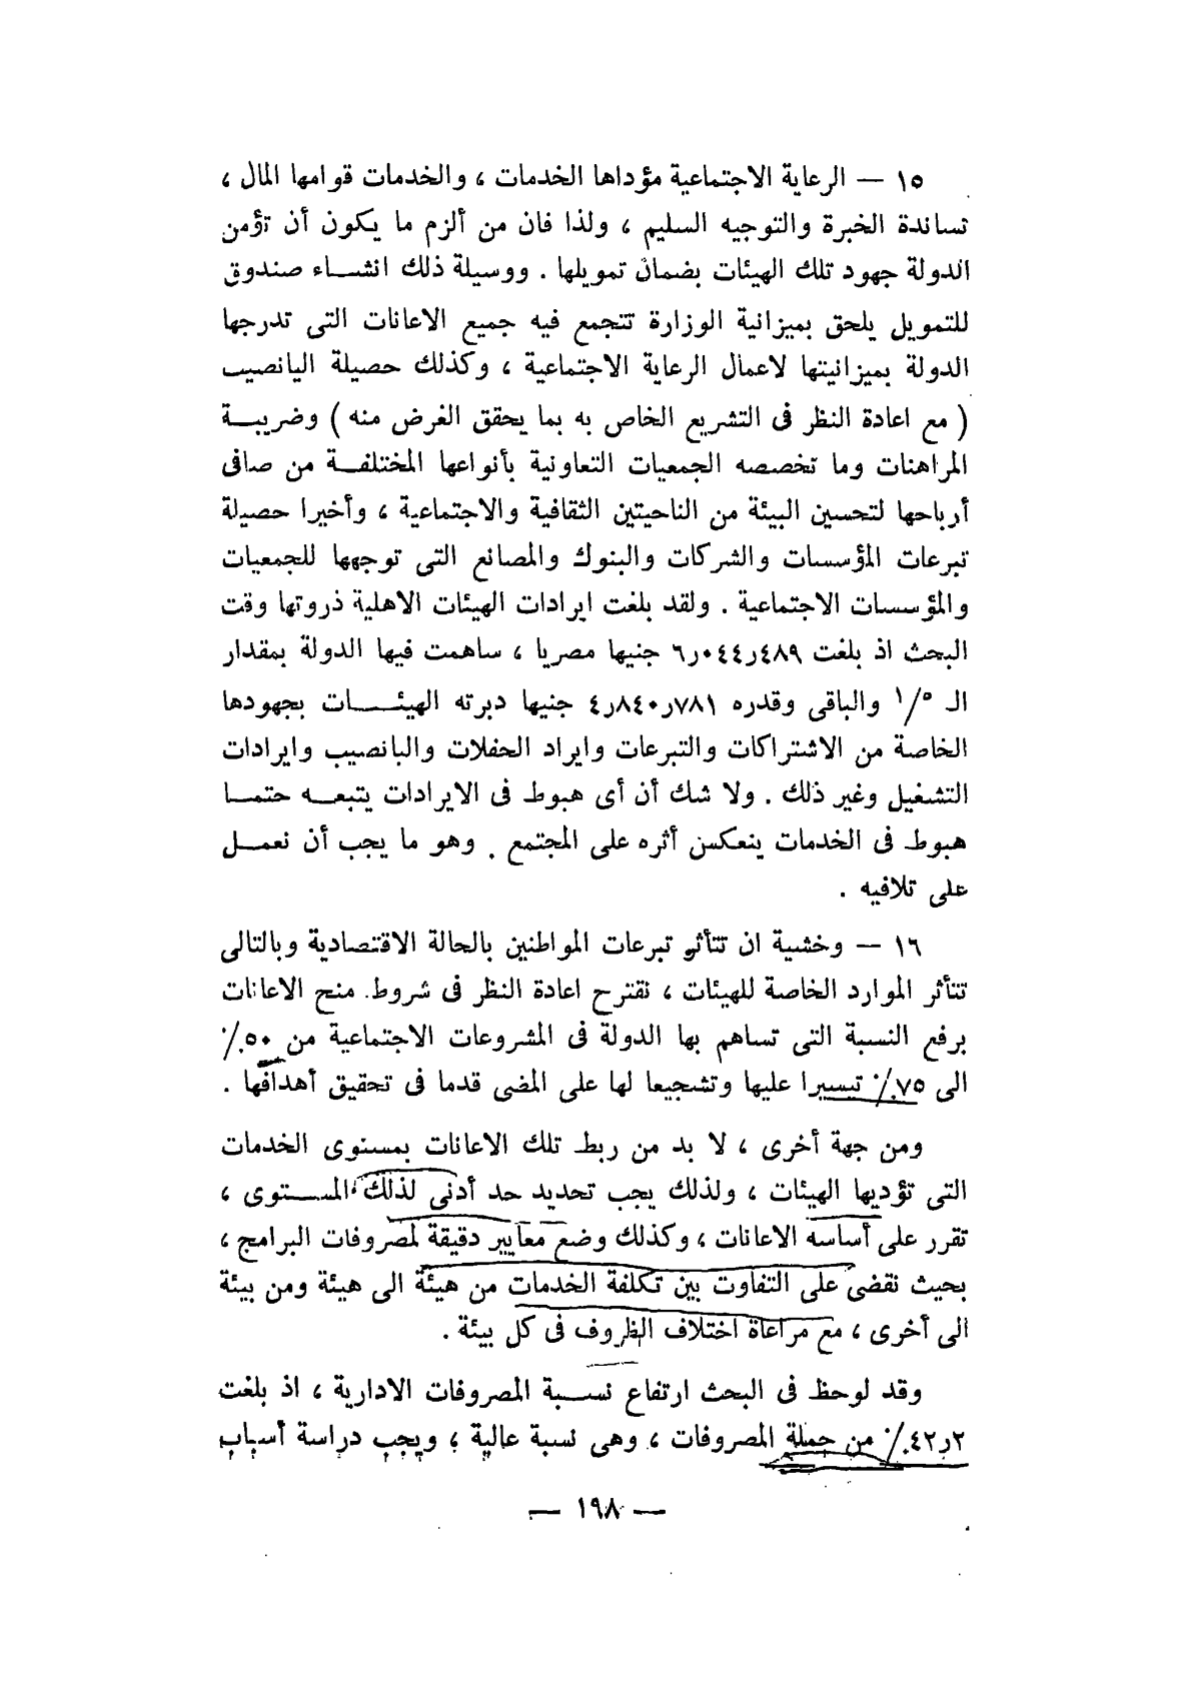 ١٥ — الرعاية الاجتماعية مؤداها الخدمات ، والخدمات قوامها المال ،
تساندة الخبرة والتوجيه السليم ، ولذا فان من ألزم ما يكون أن تؤمن
الدولة جهود تلك الهيئات بضمان تمويلها . ووسيلة ذلك انشــاء صندوق
للتمويل يلحق بميزانية الوزارة تتجمع فيه جميع الاعانات التى تدرجها
الدولة بميزانيتها لاعمال الرعاية الاجتماعية ، وكذلك حصيلة اليانصيب
( مع اعادة النظر فى التشريع الخاص به بما يحقق الغرض منه ) وضريبــة
المراهنات وما تخصصه الجمعيات التعاونية بأنواعها المختلفــة من صافى
أرباحها لتحسين البيئة من الناحيتين الثقافية والاجتماعية ، وأخيرا حصيلة
تبرعات المؤسسات والشركات والبنوك والمصانع التى توجهها للجمعيات
والمؤسسات الاجتماعية . ولقد بلغت ايرادات الهيئات الاهلية ذروتها وقت
البحث اذ بلغت ٤٨٩ر٠٤٤ر٦ جنيها مصريا ، ساهمت فيها الدولة بمقدار
الـ ١/٥ والباقى وقدره ٧٨١ر٨٤٠ر٤ جنيها دبرته الهيئــات بجهودها
الخاصة من الاشتراكات والتبرعات وايراد الحفلات والبانصيب وايرادات
التشغيل وغير ذلك . ولا شك أن أى هبوط فى الايرادات يتبعــه حتمــا
هبوط فى الخدمات ينعكس أثره على المجتمع . وهو ما يجب أن نعمــل
على تلافيه .
١٦ — وخشية ان تتأثر تبرعات المواطنين بالحالة الاقتصادية وبالتالى
تتأثر الموارد الخاصة للهيئات ، نقترح اعادة النظر فى شروط منح الاعانات
برفع النسبة التى تساهم بها الدولة فى المشروعات الاجتماعية من ٥٠٪
الى ٧٥٪ تيسيرا عليها وتشجيعا لها على المضى قدما فى تحقيق أهدافها .
ومن جهة أخرى ، لا بد من ربط تلك الاعانات بمستوى الخدمات
التى تؤديها الهيئات ، ولذلك يجب تحديد حد أدنى لذلك المســتوى ،
تقرر على أساسه الاعانات ، وكذلك وضع معايير دقيقة لمصروفات البرامج ،
بحيث نقضى على التفاوت بين تكلفة الخدمات من هيئة الى هيئة ومن بيئة
الى أخرى ، مع مراعاة اختلاف الظروف فى كل بيئة .
وقد لوحظ فى البحث ارتفاع نســبة المصروفات الادارية ، اذ بلغت
٢ر٤٢٪ من جملة المصروفات ، وهى نسبة عالية ، ويجب دراسة أسباب
— ١٩٨ —